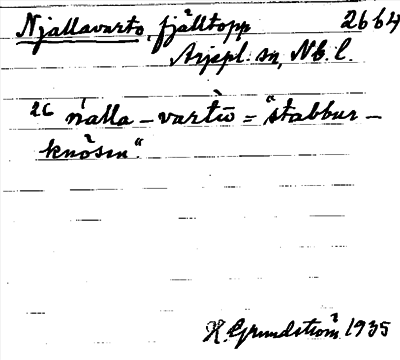 Njallavarto, fjälltopp 2664
Arjepl. sn, Nb. l.
26 ńalla - vartō = "stabbur-
knösen".
H. Grundström 1935